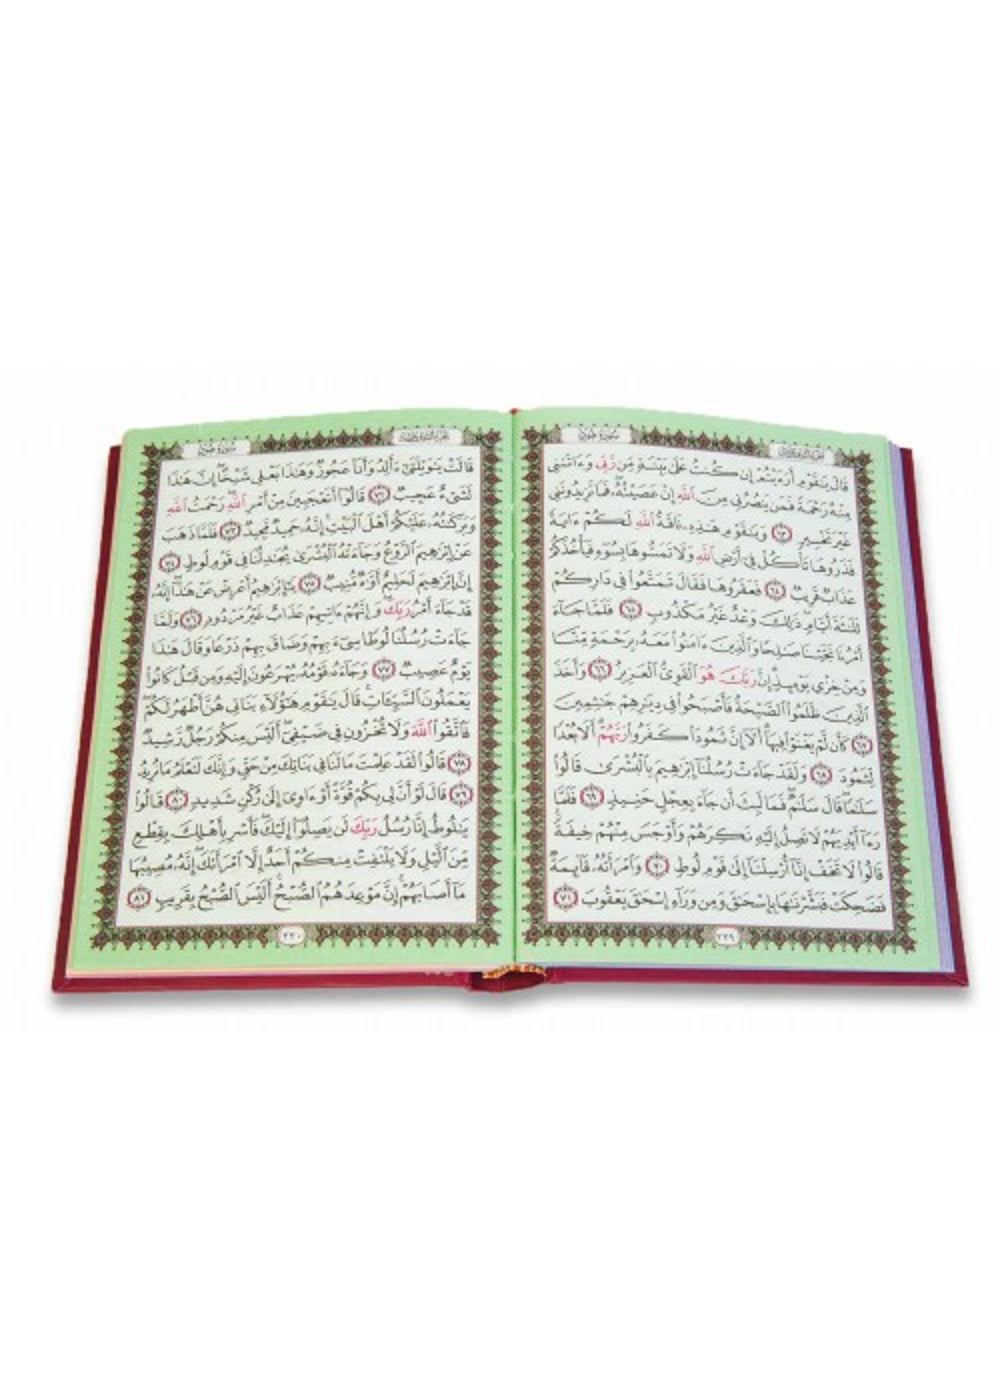 سورة هود
الجزء الثاني عشر
قَالَ يَٰقَوْمِ أَرَءَيْتُمْ إِن كُنتُ عَلَىٰ بَيِّنَةٍ مِّن رَّبِّي وَءَاتَىٰنِي
مِنْهُ رَحْمَةً فَمَن يَنصُرُنِي مِنَ ٱللَّهِ إِنْ عَصَيْتُهُۥۖ فَمَا تَزِيدُونَنِي
غَيْرَ تَخْسِيرٍ ٦٣ وَيَٰقَوْمِ هَٰذِهِۦ نَاقَةُ ٱللَّهِ لَكُمْ ءَايَةً
فَذَرُوهَا تَأْكُلْ فِيٓ أَرْضِ ٱللَّهِ وَلَا تَمَسُّوهَا بِسُوٓءٍ فَيَأْخُذَكُمْ
عَذَابٌ قَرِيبٌ ٦٤ فَعَقَرُوهَا فَقَالَ تَمَتَّعُوا۟ فِي دَارِكُمْ
ثَلَٰثَةَ أَيَّامٍۖ ذَٰلِكَ وَعْدٌ غَيْرُ مَكْذُوبٍ ٦٥ فَلَمَّا جَآءَ
أَمْرُنَا نَجَّيْنَا صَٰلِحًا وَٱلَّذِينَ ءَامَنُوا۟ مَعَهُۥ بِرَحْمَةٍ مِّنَّا
وَمِنْ خِزْيِ يَوْمِئِذٍۗ إِنَّ رَبَّكَ هُوَ ٱلْقَوِيُّ ٱلْعَزِيزُ ٦٦ وَأَخَذَ
ٱلَّذِينَ ظَلَمُوا۟ ٱلصَّيْحَةُ فَأَصْبَحُوا۟ فِي دِيَٰرِهِمْ جَٰثِمِينَ
٦٧ كَأَن لَّمْ يَغْنَوْا۟ فِيهَآۗ أَلَآ إِنَّ ثَمُودَا۟ كَفَرُوا۟ رَبَّهُمْۗ أَلَا بُعْدًا
لِّثَمُودَ ٦٨ وَلَقَدْ جَآءَتْ رُسُلُنَآ إِبْرَٰهِيمَ بِٱلْبُشْرَىٰ قَالُوا۟
سَلَٰمًاۖ قَالَ سَلَٰمٌۖ فَمَا لَبِثَ أَن جَآءَ بِعِجْلٍ حَنِيذٍ ٦٩ فَلَمَّا
رَءَآ أَيْدِيَهُمْ لَا تَصِلُ إِلَيْهِ نَكِرَهُمْ وَأَوْجَسَ مِنْهُمْ خِيفَةًۚ
قَالُوا۟ لَا تَخَفْ إِنَّآ أُرْسِلْنَآ إِلَىٰ قَوْمِ لُوطٍ ٧٠ وَٱمْرَأَتُهُۥ قَآئِمَةٌ
فَضَحِكَتْ فَبَشَّرْنَٰهَا بِإِسْحَٰقَ وَمِن وَرَآءِ إِسْحَٰقَ يَعْقُوبَ ٧١
٢٢٩
سورة هود
الجزء الثاني عشر
قَالَتْ يَٰوَيْلَتَىٰٓ ءَأَلِدُ وَأَنَا۠ عَجُوزٌ وَهَٰذَا بَعْلِي شَيْخًاۖ إِنَّ هَٰذَا
لَشَيْءٌ عَجِيبٌ ٧٢ قَالُوٓا۟ أَتَعْجَبِينَ مِنْ أَمْرِ ٱللَّهِۖ رَحْمَتُ ٱللَّهِ
وَبَرَكَٰتُهُۥ عَلَيْكُمْ أَهْلَ ٱلْبَيْتِۚ إِنَّهُۥ حَمِيدٌ مَّجِيدٌ ٧٣ فَلَمَّا ذَهَبَ
عَنْ إِبْرَٰهِيمَ ٱلرَّوْعُ وَجَآءَتْهُ ٱلْبُشْرَىٰ يُجَٰدِلُنَا فِي قَوْمِ لُوطٍ ٧٤
إِنَّ إِبْرَٰهِيمَ لَحَلِيمٌ أَوَّٰهٌ مُّنِيبٌ ٧٥ يَٰٓإِبْرَٰهِيمُ أَعْرِضْ عَنْ هَٰذَآۖ إِنَّهُۥ
قَدْ جَآءَ أَمْرُ رَبِّكَۖ وَإِنَّهُمْ ءَاتِيهِمْ عَذَابٌ غَيْرُ مَرْدُودٍ ٧٦ وَلَمَّا
جَآءَتْ رُسُلُنَا لُوطًا سِيٓءَ بِهِمْ وَضَاقَ بِهِمْ ذَرْعًا وَقَالَ هَٰذَا
يَوْمٌ عَصِيبٌ ٧٧ وَجَآءَهُۥ قَوْمُهُۥ يُهْرَعُونَ إِلَيْهِ وَمِن قَبْلُ كَانُوا۟
يَعْمَلُونَ ٱلسَّيِّـَٔاتِۚ قَالَ يَٰقَوْمِ هَٰٓؤُلَآءِ بَنَاتِي هُنَّ أَطْهَرُ لَكُمْۖ
فَٱتَّقُوا۟ ٱللَّهَ وَلَا تُخْزُونِ فِي ضَيْفِيٓۖ أَلَيْسَ مِنكُمْ رَجُلٌ رَّشِيدٌ
٧٨ قَالُوا۟ لَقَدْ عَلِمْتَ مَا لَنَا فِي بَنَاتِكَ مِنْ حَقٍّ وَإِنَّكَ لَتَعْلَمُ مَا نُرِيدُ
٧٩ قَالَ لَوْ أَنَّ لِي بِكُمْ قُوَّةً أَوْ ءَاوِيٓ إِلَىٰ رُكْنٍ شَدِيدٍ ٨٠ قَالُوا۟
يَٰلُوطُ إِنَّا رُسُلُ رَبِّكَ لَن يَصِلُوٓا۟ إِلَيْكَۖ فَأَسْرِ بِأَهْلِكَ بِقِطْعٍ
مِّنَ ٱلَّيْلِ وَلَا يَلْتَفِتْ مِنكُمْ أَحَدٌ إِلَّا ٱمْرَأَتَكَۖ إِنَّهُۥ مُصِيبُهَا
مَآ أَصَابَهُمْۚ إِنَّ مَوْعِدَهُمُ ٱلصُّبْحُۚ أَلَيْسَ ٱلصُّبْحُ بِقَرِيبٍ ٨١
٢٣٠